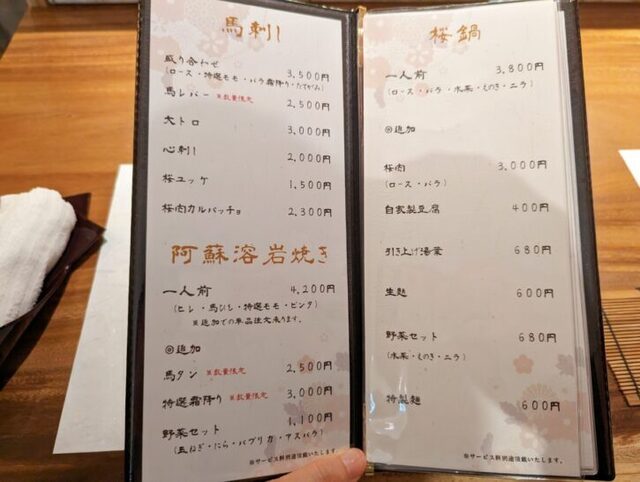 馬刺し
盛り合わせ 3,500円
(ロース・特選モモ・バラ霜降り・たてがみ)
馬レバー ※数量限定 2,500円
大トロ 3,000円
心刺し 2,000円
桜ユッケ 1,500円
桜肉カルパッチョ 2,300円
阿蘇溶岩焼き
一人前 4,200円
(ヒレ・馬ひし・特選モモ・ビンタ)
※追加での単品注文承ります。
◎追加
馬タン ※数量限定 2,500円
特選霜降り ※数量限定 3,000円
野菜セット 1,100円
(玉ねぎ・にら・パプリカ・アスパラ)
※サービス料別途頂戴いたします。
桜鍋
一人前 3,800円
(ロース・バラ・水菜・えのき・ニラ)
◎追加
桜肉 3,000円
(ロース・バラ)
自家製豆腐 400円
引き上げ湯葉 680円
生麩 600円
野菜セット 680円
(水菜・えのき・ニラ)
特製麺 600円
※サービス料別途頂戴いたします。